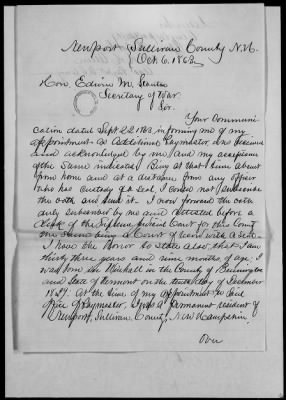 Newport Sullivan County N.H.
Oct. 6. 1863.
Hon. Edwin M. Stanton
Secretary of War
Sir.
Your Communi-
cation dated Sept 22 1863 informing me of my
appointment as Additional Paymaster, was received
and acknowledged by me, and my acceptance
of the same indicated. Being at that time absent
from home and at a distance from any officer
who has custody of a seal, I could not subscribe
the oath and send it. I now forward the oath
duly subscribed by me and attested before a
Clerk of the Supreme Judicial Court for this County
the same being a Court of record with a seal.
I have the Honor to state also, that I am
thirty three years and nine months of age. I
was born in Winhall in the County of Bennington
and State of Vermont on the day of December
1829. At the time of my appointment to said
office of Paymaster, I was a permanent resident of
Newport, Sullivan County, New Hampshire.
Over